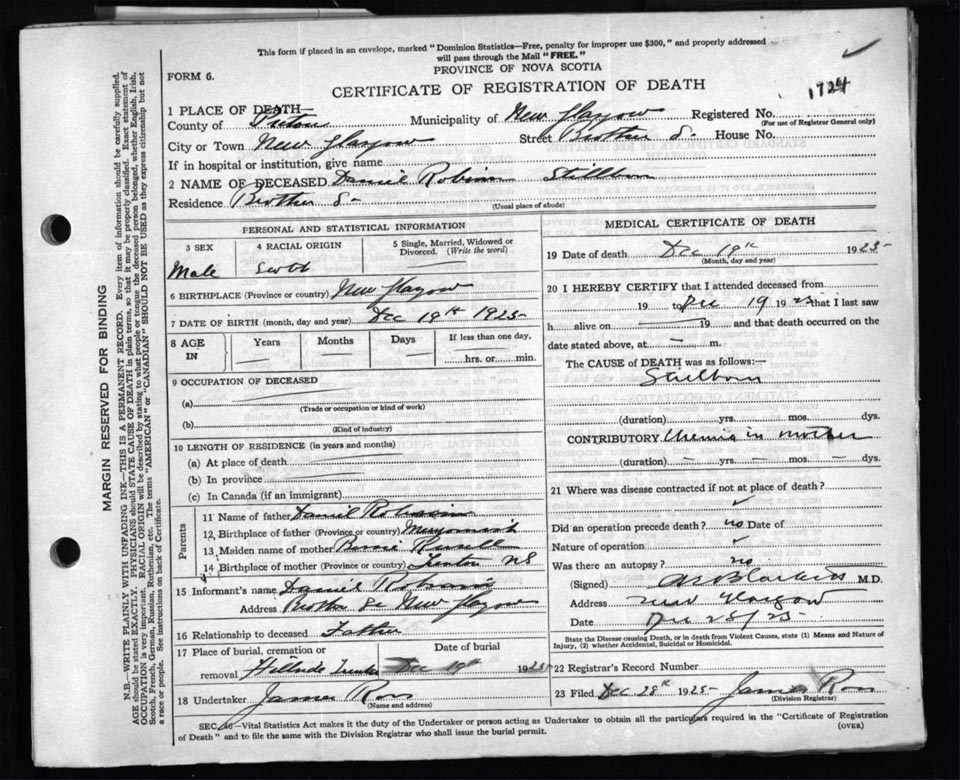 This form if placed in an envelope, marked "Dominion Statistics—Free, penalty for improper use $300," and properly addressed
will pass through the Mail "FREE."
PROVINCE OF NOVA SCOTIA
FORM 6.
CERTIFICATE OF REGISTRATION OF DEATH
1724
1 PLACE OF DEATH—
County of Pictou Municipality of New Glasgow Registered No.
(For use of Registrar General only)
City or Town New Glasgow Street House No.
If in hospital or institution, give name
2 NAME OF DECEASED Daniel Stillborn
Residence
(Usual place of abode)
PERSONAL AND STATISTICAL INFORMATION
3 SEX Male
4 RACIAL ORIGIN Scotch
5 Single, Married, Widowed or Divorced. (Write the word)
6 BIRTHPLACE (Province or country) New Glasgow
7 DATE OF BIRTH (month, day and year) Dec 19th 1925
8 AGE IN Years Months Days If less than one day, hrs. or min.
9 OCCUPATION OF DECEASED
(a)
(Trade or occupation or kind of work)
(b)
(Kind of industry)
10 LENGTH OF RESIDENCE (in years and months)
(a) At place of death
(b) In province
(c) In Canada (if an immigrant)
Parents
11 Name of father Daniel
12 Birthplace of father (Province or country) Merigomish
13 Maiden name of mother
14 Birthplace of mother (Province or country) NS
15 Informant's name Daniel
Address New Glasgow
16 Relationship to deceased Father
17 Place of burial, cremation or removal Date of burial
Dec 19th 1925
18 Undertaker James Ross
(Name and address)
MEDICAL CERTIFICATE OF DEATH
19 Date of death Dec 19th 1925
(Month, day and year)
20 I HEREBY CERTIFY that I attended deceased from
19 to Dec 19 1925 that I last saw
h alive on 19 and that death occurred on
date stated above, at — m.
The CAUSE of DEATH was as follows:—
Stillborn
(duration) yrs. mos. dys.
CONTRIBUTORY in mother
(duration) — yrs — mos. — dys.
21 Where was disease contracted if not at place of death?
Did an operation precede death? no Date of
Nature of operation
Was there an autopsy? no
(Signed) M.D.
Address New Glasgow
Date
State the Disease causing Death, or in death from Violent Causes, state (1) Means and Nature of
Injury, (2) whether Accidental, Suicidal or Homicidal.
22 Registrar's Record Number
23 Filed Dec 28th 1925 James Ross
(Division Registrar)
SEC. 36—Vital Statistics Act makes it the duty of the Undertaker or person acting as Undertaker to obtain all the particulars required in the "Certificate of Registration
of Death" and to file the same with the Division Registrar who shall issue the burial permit.
(OVER)
MARGIN RESERVED FOR BINDING
N.B.—WRITE PLAINLY WITH UNFADING INK—THIS IS A PERMANENT RECORD. Every item of information should be carefully supplied.
AGE should be stated EXACTLY. PHYSICIANS should STATE CAUSE OF DEATH in plain terms, so that it may be properly classified. Exact statement of
OCCUPATION is very important. RACIAL ORIGIN will be described by stating to what people or tongue the deceased person belonged, whether English, Irish,
Scotch, French, German, Russian, Ruthenian, etc. The terms "AMERICAN" or "CANADIAN" SHOULD NOT BE USED as they express citizenship but not
a race or people. See instructions on back of Certificate.